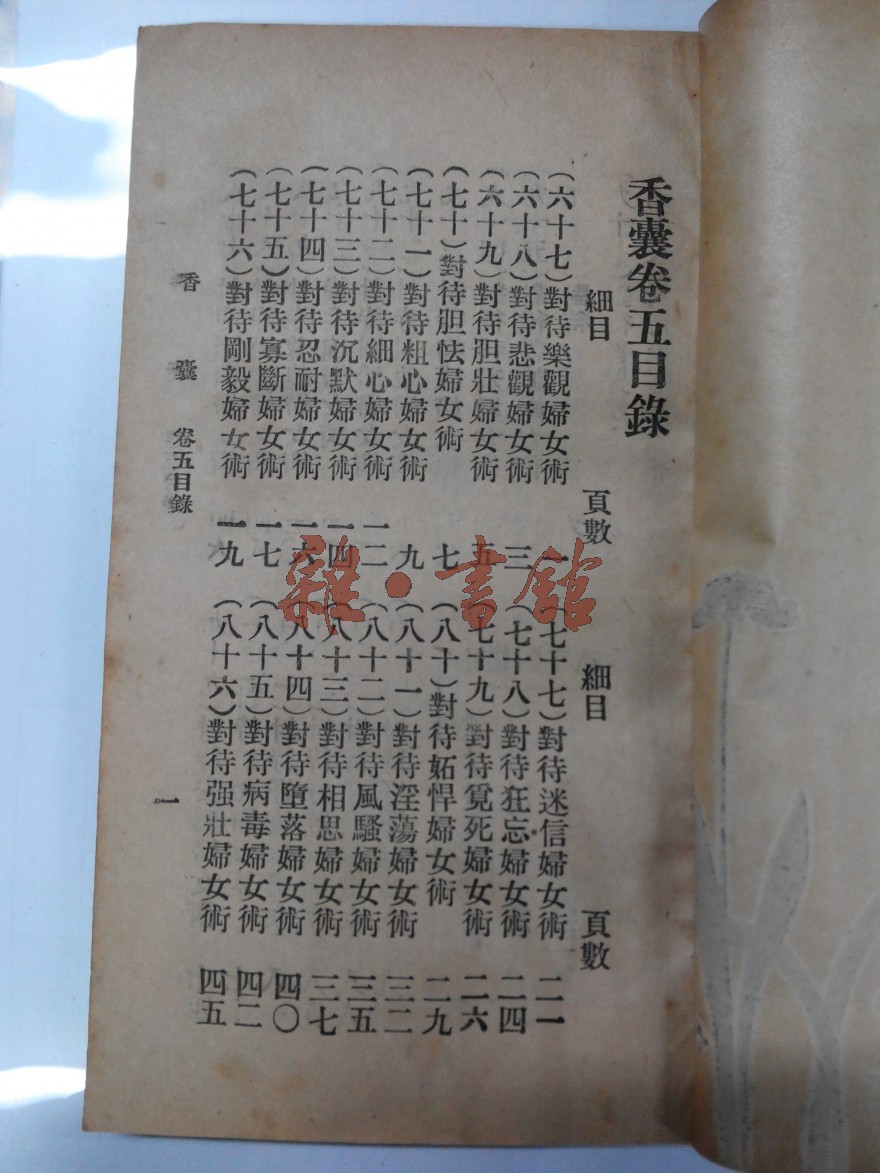 香囊卷五目錄
細目
頁數
細目
頁數
(六十七)對待樂觀婦女術 一
(六十八)對待悲觀婦女術 三
(六十九)對待胆壯婦女術 五
(七十)對待胆怯婦女術 七
(七十一)對待粗心婦女術 九
(七十二)對待細心婦女術 一二
(七十三)對待沉默婦女術 一四
(七十四)對待忍耐婦女術 一六
(七十五)對待寡斷婦女術 一七
(七十六)對待剛毅婦女術 一九
(七十七)對待迷信婦女術 二一
(七十八)對待狂忘婦女術 二四
(七十九)對待覓死婦女術 二六
(八十)對待妬悍婦女術 二九
(八十一)對待淫蕩婦女術 三二
(八十二)對待風騷婦女術 三五
(八十三)對待相思婦女術 三七
(八十四)對待墮落婦女術 四〇
(八十五)對待病毒婦女術 四二
(八十六)對待强壯婦女術 四五
香囊 卷五目錄 一
雜·書館